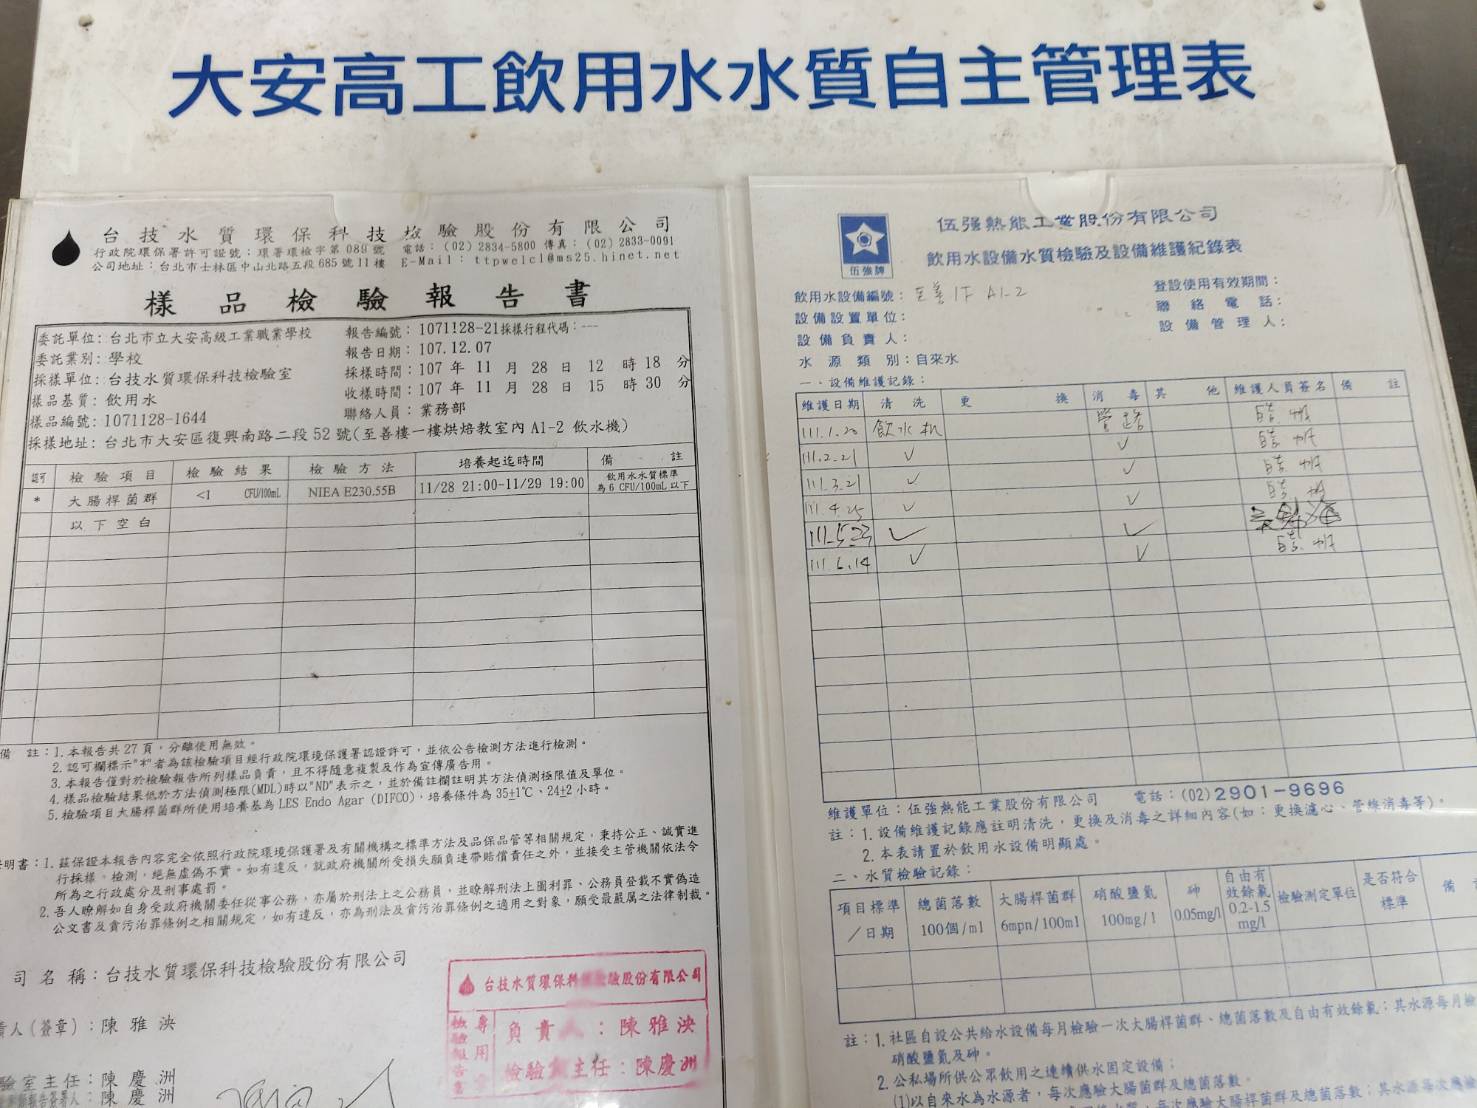 大安高工飲用水水質自主管理表
台技水質環保科技檢驗股份有限公司
行政院環保署許可證號：環署環檢字第080號 電話：(02) 2834-5800 傳真：(02) 2833-0091
公司地址：台北市士林區中山北路五段685號11樓 E-Mail : ttpwelcl@ms25.hinet.net
樣品檢驗報告書
委託單位：台北市立大安高級工業職業學校 報告編號：1071128-21 採樣行程代碼：---
委託業別：學校 報告日期：107.12.07
採樣單位：台技水質環保科技檢驗室 採樣時間：107 年 11 月 28 日 12 時 18 分
樣品基質：飲用水 收樣時間：107 年 11 月 28 日 15 時 30 分
樣品編號：1071128-1644 聯絡人員：業務部
採樣地址：台北市大安區復興南路二段52號(至善樓一樓烘焙教室內 A1-2 飲水機)
認可 檢驗項目 檢驗結果 檢驗方法 培養起迄時間 備註
* 大腸桿菌群 <1 CFU/100mL NIEA E230.55B 11/28 21:00-11/29 19:00 飲用水水質標準
為6 CFU/100mL以下
以下空白
備 註：1.本報告共27頁，分離使用無效。
2.認可欄標示"*"者為該檢驗項目經行政院環境保護署認證許可，並依公告檢測方法進行檢測。
3.本報告僅對於檢驗報告所列樣品負責，且不得隨意複製及作為宣傳廣告用。
4.樣品檢驗結果低於方法偵測極限(MDL)時以"ND"表示之，並於備註欄註明其方法偵測極限值及單位。
5.檢驗項目大腸桿菌群所使用培養基為LES Endo Agar (DIFCO)，培養條件為35±1℃、24±2小時。
明書：1.茲保證本報告內容完全依照行政院環境保護署及有關機構之標準方法及品保品管等相關規定，秉持公正、誠實進
行採樣、檢測，絕無虛偽不實。如有違反，就政府機關所受損失願負連帶賠償責任之外，並接受主管機關依法令
所為之行政處分及刑事處罰。
2.吾人瞭解如自身受政府機關委任從事公務，亦屬於刑法上之公務員，並瞭解刑法上圖利罪、公務員登載不實偽造
公文書及貪污治罪條例之相關規定，如有違反，亦為刑法及貪污治罪條例之適用之對象，願受最嚴厲之法律制裁。
司名稱：台技水質環保科技檢驗股份有限公司
責人(簽章)：陳雅泱
驗室主任：陳慶洲
陳慶洲
台技水質環保科 驗股份有限公司
檢驗報告書
專用
負責人：陳雅泱
檢驗室主任：陳慶洲
伍強牌
伍強熱能工業股份有限公司
飲用水設備水質檢驗及設備維護紀錄表
飲用水設備編號：至善1F A1-2 登設使用有效期間：
設備設置單位： 聯絡電話：
設備負責人： 設備管理人：
水源類別：自來水
一、設備維護記錄：
維護日期 清洗 更換 消毒 其他 維護人員簽名 備註
111.1.20 飲水机 管路
111.2.21 ✓ ✓
111.3.21 ✓ ✓
111.4.25 ✓ ✓
111.5.23 ✓ ✓
111.6.14 ✓ ✓
維護單位：伍強熱能工業股份有限公司 電話：(02)2901-9696
註：1.設備維護記錄應註明清洗，更換及消毒之詳細內容(如：更換濾心、管線消毒等)。
2.本表請置於飲用水設備明顯處。
二、水質檢驗記錄：
項目標準／日期 總菌落數 100個/ml 大腸桿菌群 6mpn/100ml 硝酸鹽氮 100mg/l 砷 0.05mg/l 自由有效餘氯 0.2-1.5 mg/l 檢驗測定單位 是否符合標準 備
註：1.社區自設公共給水設備每月檢驗一次大腸桿菌群、總菌落數及自由有效餘氯；其水源每月檢
硝酸鹽氮及砷。
2.公私場所供公眾飲用之連續供水固定設備：
(1)以自來水為水源者，每次應驗大腸菌群及總菌落數。
每次應驗大腸桿菌群及總菌落數；其水源每次應檢